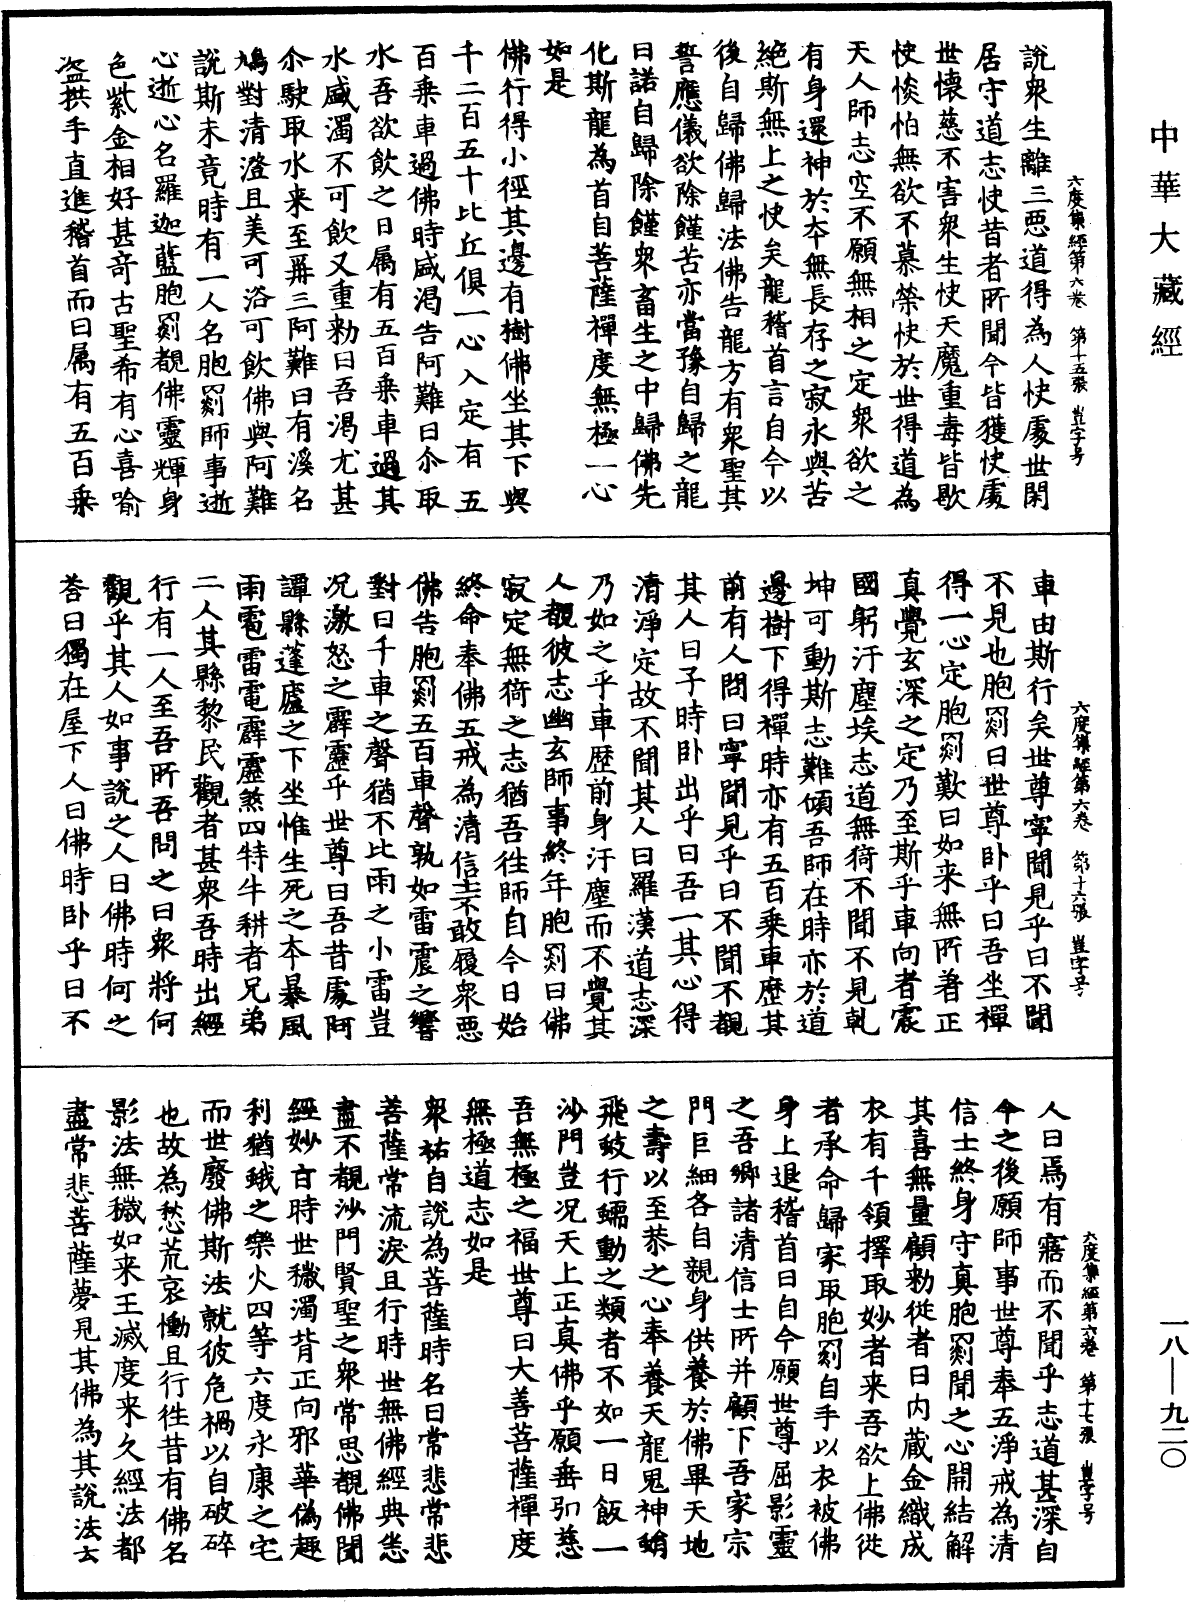 中華大藏經
六度集經第六卷　第十五張　豈字号
說衆生離三惡道得為人快處世閑
居守道志快昔者所聞今皆獲快處
世懷慈不害衆生快天魔重毒皆歇
快惔怕無欲不慕榮快於世得道為
天人師志空不願無相之定衆欲之
有身還神於本無長存之寂永與苦
絕斯無上之快矣龍稽首言自今以
後自歸佛歸法佛告龍方有衆聖其
誓應儀欲除饉苦亦當豫自歸之龍
曰諾自歸除饉衆畜生之中歸佛先
化斯龍為首自菩薩禪度無極一心
如是
佛行得小徑其邊有樹佛坐其下與
千二百五十比丘俱一心入定有五
百乘車過佛時盛渴告阿難曰尒取
水吾欲飲之曰屬有五百乘車過其
水盛濁不可飲又重勑曰吾渴尤甚
尒駛取水来至再三阿難曰有溪名
鳩對清澄且美可浴可飲佛與阿難
說斯未竟時有一人名胞罽師事逝
心逝心名羅迦藍胞罽覩佛靈輝身
色紫金相好甚奇古聖希有心喜喻
盗拱手直進稽首而曰属有五百乗
六度集經第六卷　第十六張　豈字号
車由斯行矣世尊寧聞見乎曰不聞
不見也胞罽曰世尊卧乎曰吾坐禪
得一心定胞罽歎曰如来無所著正
真覺玄深之定乃至斯乎車向者震
國躬汙塵埃志道無猗不聞不見乾
坤可動斯志難傾吾師在時亦於道
邊樹下得禪時亦有五百乘車歷其
前有人問曰寧聞見乎曰不聞不覩
其人曰子時卧出乎曰吾一其心得
清淨定故不聞其人曰羅漢道志深
乃如之乎車歷前身汙塵而不覺其
人覩彼志幽玄師事終年胞罽曰佛
寂定無猗之志猶吾往師自今日始
終命奉佛五戒為清信士不敢履衆惡
佛告胞罽五百車聲孰如雷震之響
對曰千車之聲猶不比雨之小雷豈
况激怒之霹靂乎世尊曰吾昔處阿
譚縣蓬廬之下坐惟生死之本暴風
雨雹雷電霹靂煞四特牛耕者兄弟
二人其縣黎民觀者甚衆吾時出經
行有一人至吾所吾問之曰衆將何
觀乎其人如事說之人曰佛時何之
荅曰獨在屋下人曰佛時卧乎曰不
六度集經第六卷　第十七張　豈字号
人曰焉有寤而不聞乎志道甚深自
今之後願師事世尊奉五淨戒為清
信士終身守真胞罽聞之心開結解
其喜無量顧勑從者曰内藏金織成
衣有千領擇取妙者来吾欲上佛從
者承命歸家取胞罽自手以衣被佛
身上退稽首曰自今願世尊屈影靈
之吾鄉諸清信士所并顧下吾家宗
門巨細各自親身供養於佛畢天地
之壽以至恭之心奉養天龍鬼神蜎
飛蚑行蠕動之類者不如一日飯一
沙門豈况天上正真佛乎願垂弘慈
吾無極之福世尊曰大善菩薩禪度
無極道志如是
衆祐自說為菩薩時名曰常悲常悲
菩薩常流淚且行時世無佛經典悉
盡不覩沙門賢聖之衆常思覩佛聞
經妙言時世穢濁背正向邪華偽趣
利猶蛾之樂火四等六度永康之宅
而世廢佛斯法就彼危禍以自破碎
也故為愁荒哀慟且行往昔有佛名
影法無穢如来王滅度来久經法都
盡常悲菩薩夢見其佛為其說法云
一八—九二〇